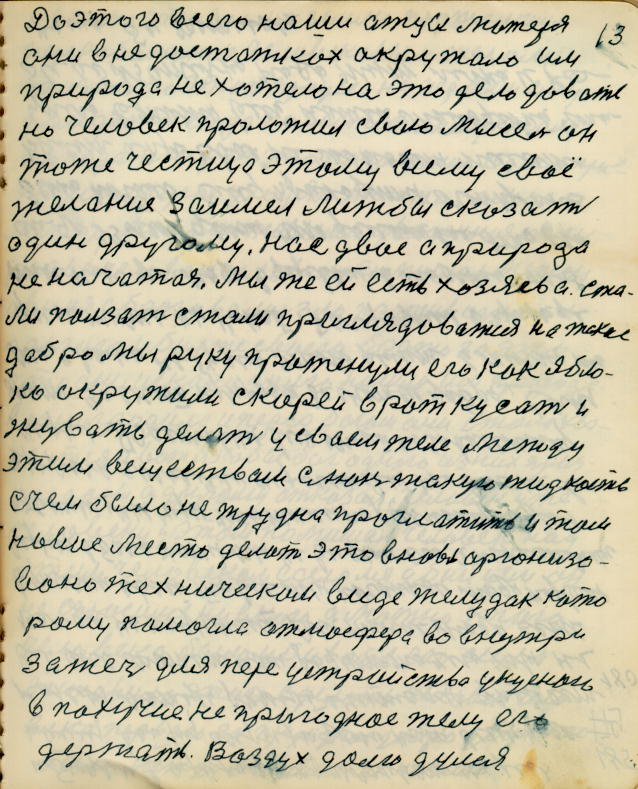 До этого всего наши отцы матеря
13
они в недостатках окружало им
природа не хотело на это дело довать
но человек проложил свою мысел он
тоже честицо этому всему своё
желание заимел лижбы сказать
один другому. Нас двое а природа
не начатая. Мы же ей есть хозяева. ста-
ли ползат стали приглядоватся на такое
дабро мы руку протенули его как ябло-
ко окружили скорей в рот кусат и
жувать делат у своем теле между
этим веществам слюну такую жидкость
с чем было не трудна проглатить и там
новое место делат это вновь оргонизо-
вано техническом виде желудак като
рому помогла атмосфера во внутри
зажеч для пере устройства укусного
в пахучие не пригодное телу его
держать. Воздух долго дулся